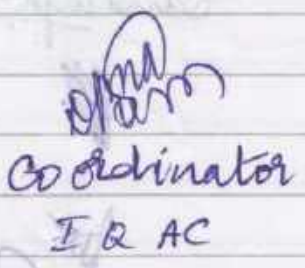 Coordinator
I Q AC